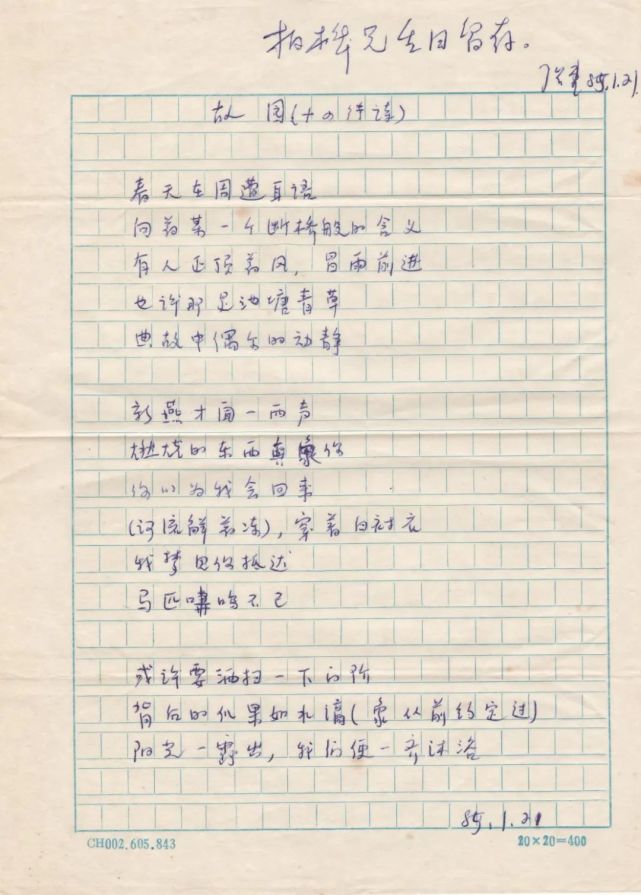 柏桦兄生日留存。
张枣 85.1.21.
故园(十四行诗)
春天在周遭耳语
向着某一个断桥般的含义
有人正顶着风,冒雨前进
也许那是池塘青草
典故中偶尔的动静
新燕才闻一两声
燃烧的东西真象你
你以为我会回来
(河流解着冻),穿着白衬衣
我梦见你抵达
马匹嘶鸣不已
或许要洒扫一下门阶
背后的瓜果如水滴(象从前约定过)
阳光一露出,我们便一齐沐浴
85.1.21
CH002.605.843
20×20=400